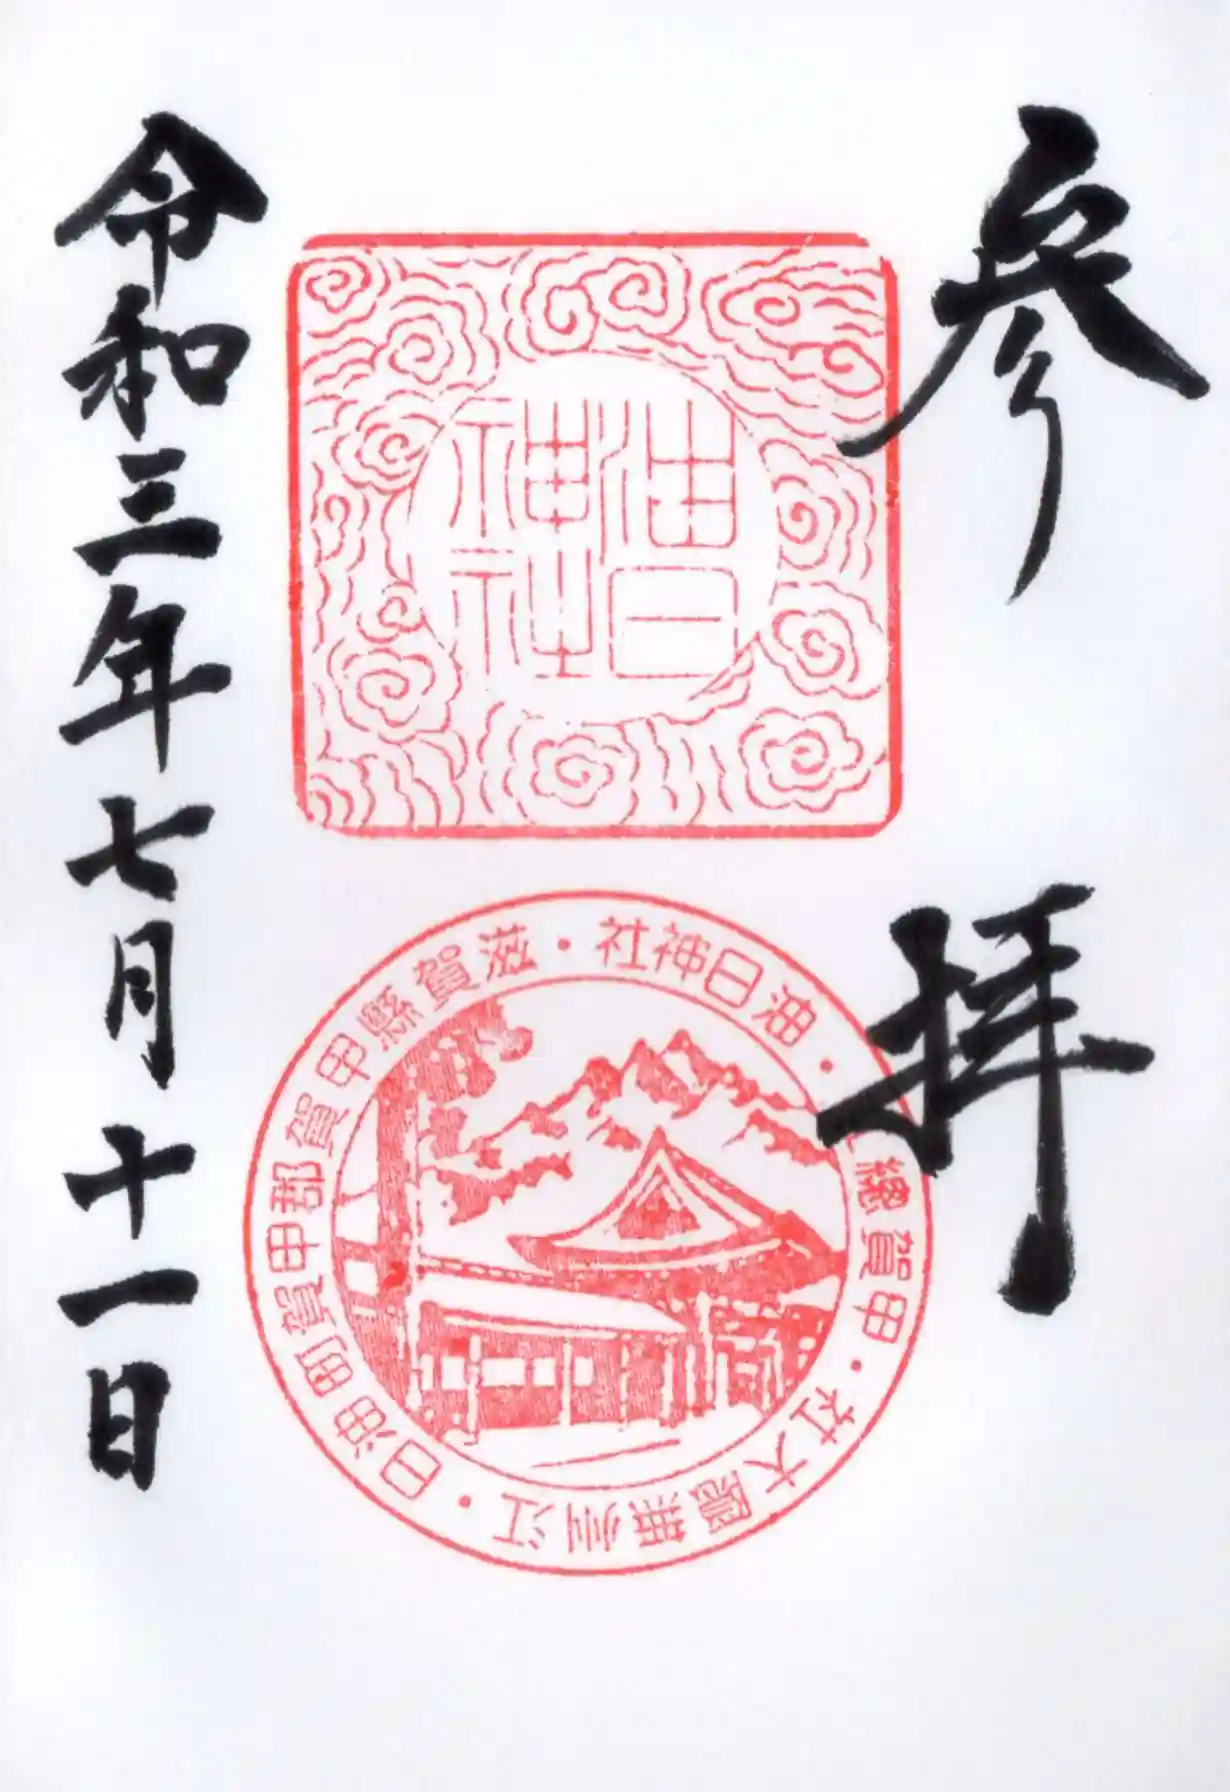 参拝
油日
神社
油日神社・滋賀縣甲賀郡甲賀町油日・江州無大社・甲賀總
令和三年七月十一日